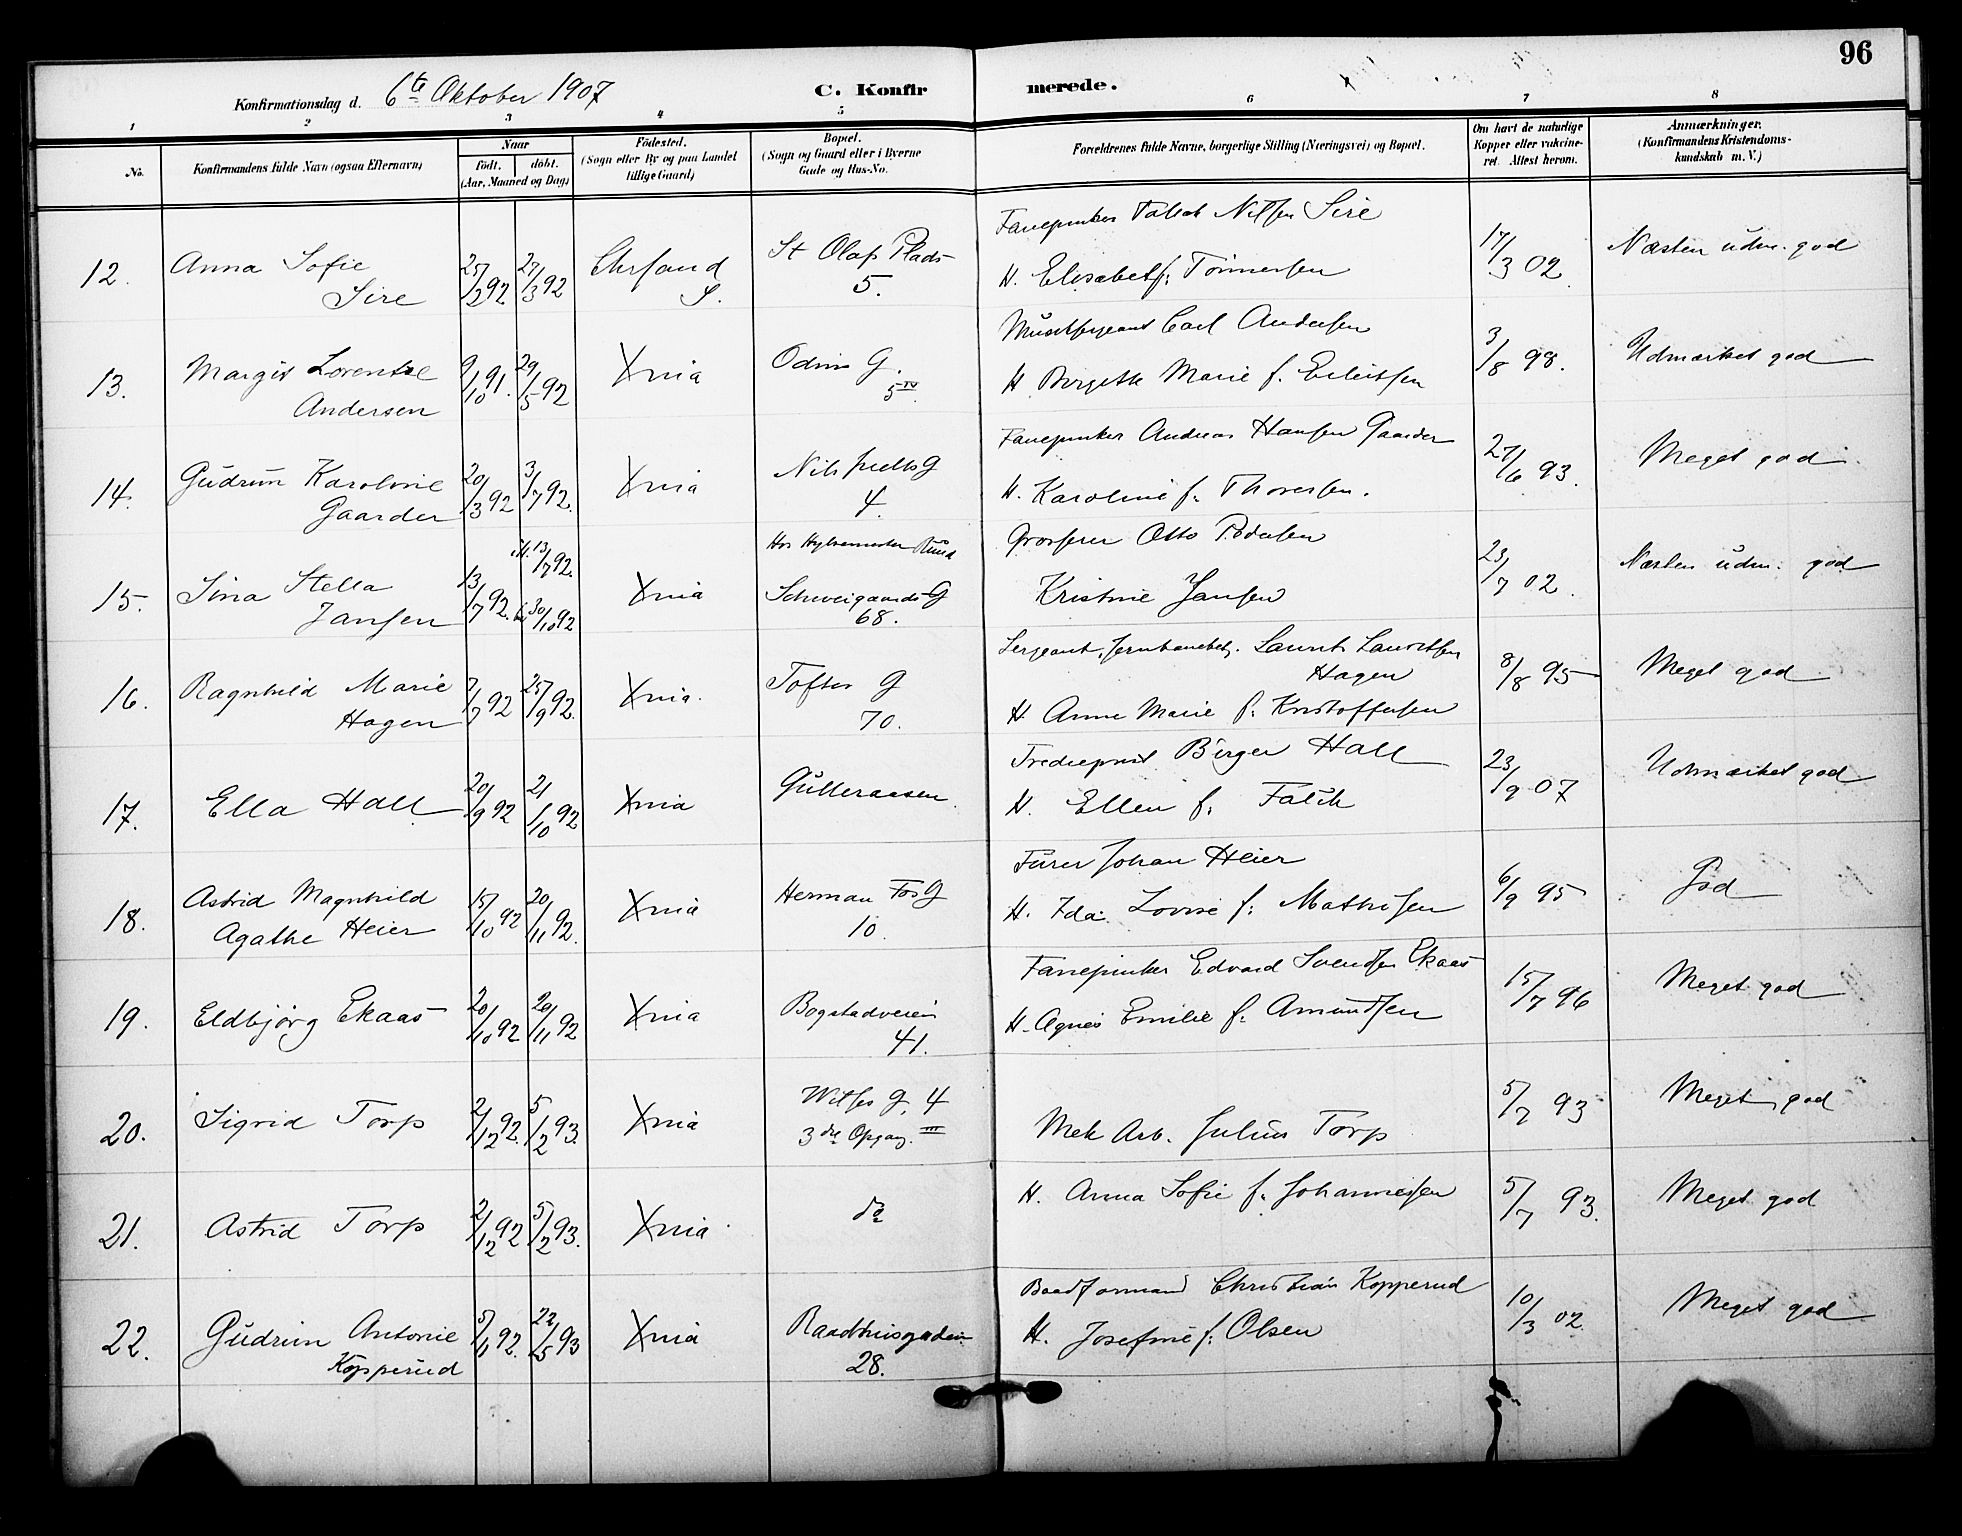 96
Konfirmationsdag d. 6te Oktober 1907 C. Konfirmerede.
1 2 3 4 5 6 7 8
No. Konfirmandens fulde Navn (ogsaa Efternavn) Naar født. døbt. (Aar, Maaned og Dag) Fødested. (Sogn eller By og paa Landet tillige Gaard) Bopæl. (Sogn og Gaard eller i Byerne Gade og Hus-No. Forældrenes fulde Navne, borgerlige Stilling (Næringsvei) og Bopæl. Om havt de naturlige Kopper eller vakcineret. Attest herom. Anmærkninger. (Konfirmandens Kristendomskundskab m. V.)
12. Anna Sofie Sire 25/2 92 27/3 92 Chrsand S. St Olafs Plads 5. Nilsen Sire
H. Elisabet f. Tønnesen 17/3 02 Næsten udm. god
13. Margit Lorentze Andersen 9/10 91. 29/5 92 Xnia Odins G. 5 IV Carl Andersen
H Birgitte Marie f. Eilertsen 3/8 98. Udmærket god
14. Gudrun Karoline Gaarder 20/3 92 3/7 92. Xnia Nils Juels G 4. Andreas Hansen Gaarder
H. Karoline f. Thoresen. 27/6 93. Meget god
15. Sina Stella Jansen 13/7 92. H. 13/7 92. 30/10 92 Xnia Hos Ruud Schweigaards G 68. Grosserer Otto Pedersen
Kristine Jansen 23/7 02. Næsten udm. god
16. Ragnhild Marie Hagen 7/7 92 25/9 92. Xnia. Toftes G 70. Sergeant, Jernbanebetj. Laurits Lauritsen Hagen
H. Anne Marie f. Kristoffersen 8/8 95 Meget god
17. Ella Hall 20/9 92 21/10 92 Xnia Gulleraasen. Birger Hall
H. Ellen f. Falck 23/9 07 Udmærket god
18. Astrid Magnhild Agathe Heier 15/10 92 20/11 92. Xnia Herman Fos G 10. Furer Johan Heier
H. Ida Lovise f. Mathisen 6/9 95 God
19. Eldbjørg Ekaas 20/10 92 20/11 92 Xnia Bogstadveien 41. Edvard Svendsen Ekaas
H. Agnes Emilie f. Amundsen 15/7 96 Meget god
20. Sigrid Torp 2/12 92. 5/2 93. Xnia Witses G. 4 3die Opgang. III Mek Arb. Julius Torp 5/7 93 Meget god
21. Astrid Torp 2/12 92 5/2 93. Xnia. do H. Anna Sofie f. Johannessen 5/7 93. Meget god
22. Gudrun Antonie Kopperud 5/11 92. 22/5 93 Xnia Raadhusgaden 28. Baadformand Christian Kopperud
H. Josefine f. Olsen 10/3 02. Meget god